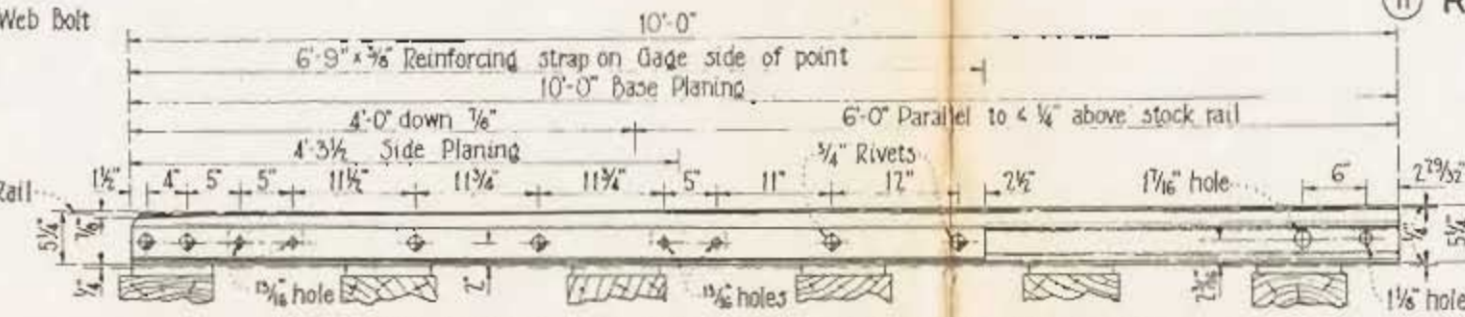 Web Bolt
11 R
10'-0"
6'-9" x 3/8" Reinforcing strap on Gage side of point
10'-0" Base Planing
4'-0" down 7/8"
6'-0" Parallel to & 1/4" above stock rail
4'-3 1/2 Side Planing
3/4" Rivets
1 1/2" 4" 5" 5" 11 1/2" 11 3/4" 11 3/4" 5" 11" 12" 2 1/2" 1 7/16" hole 6" 2 29/32"
5 1/4" 7/8" 1/4" 5 1/4"
1/4" 13/16" hole 2" 13/16" holes 1 1/8" hole